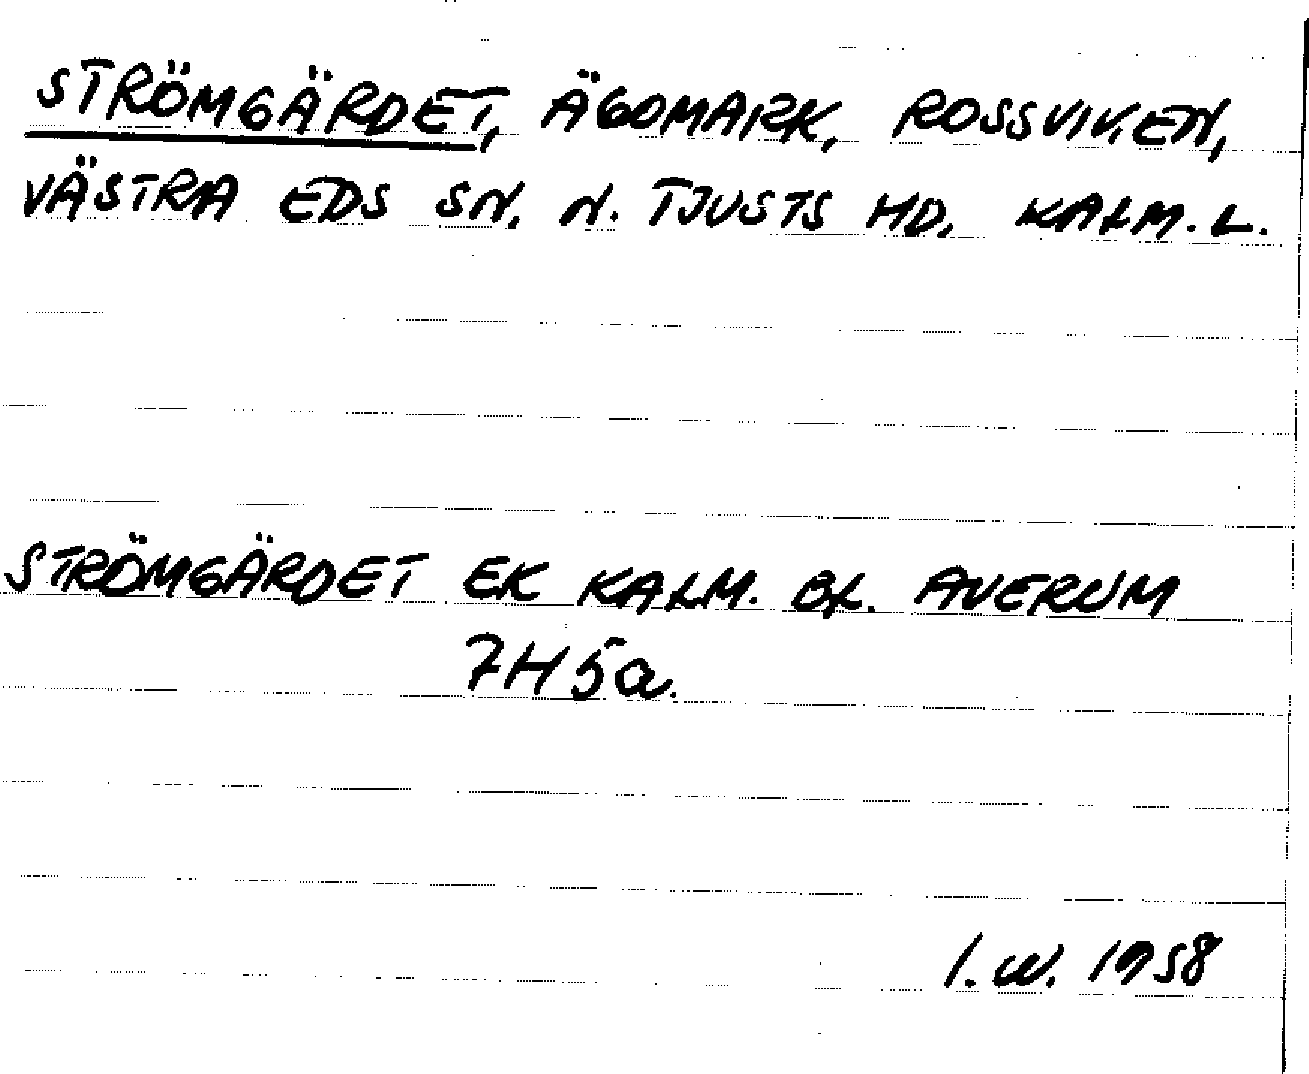 STRÖMGÄRDET, ÄGOMARK, ROSSVIKEN,
VÄSTRA EDS SN. N. TJUSTS HD. KALM. L.
STRÖMGÄRDET EK KALM. BL. AVERUM
7H5a.
I.W. 1958